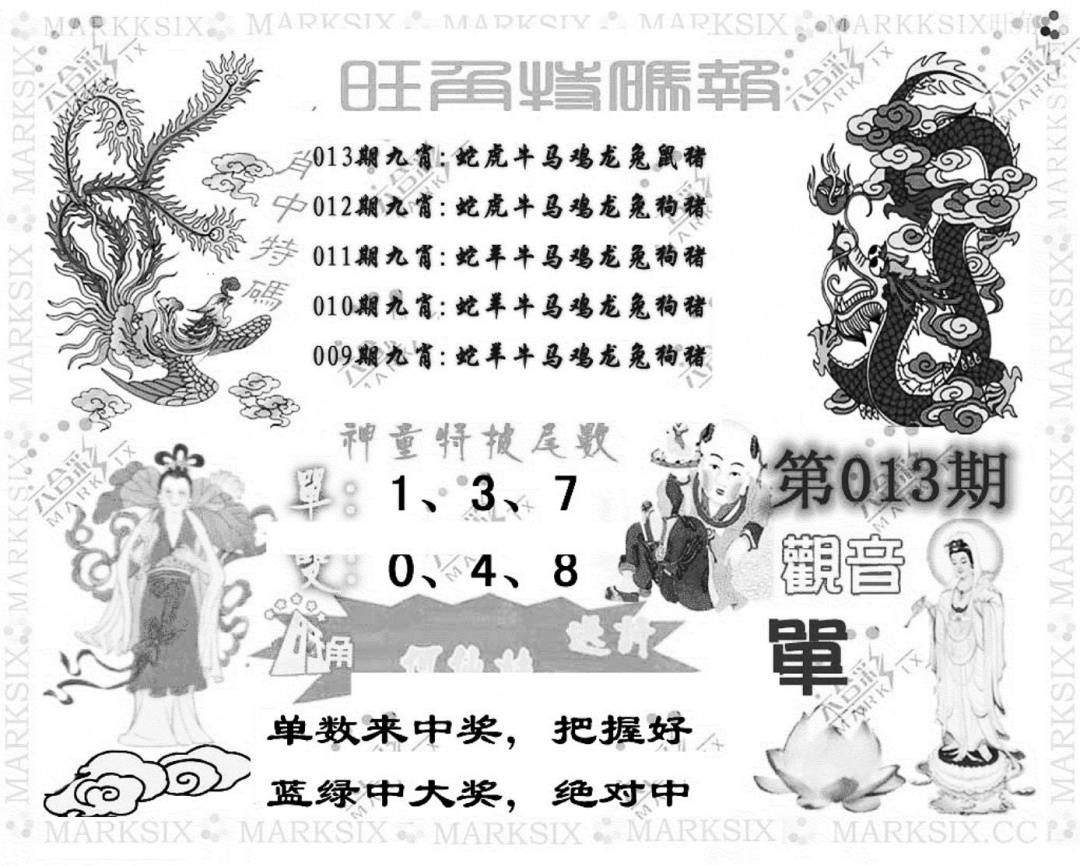 旺角特碼報
角中特碼
013期九肖：蛇虎牛马鸡龙兔鼠猪
012期九肖：蛇虎牛马鸡龙兔狗猪
011期九肖：蛇羊牛马鸡龙兔狗猪
010期九肖：蛇羊牛马鸡龙兔狗猪
009期九肖：蛇羊牛马鸡龙兔狗猪
神童特披尾數
單：1、3、7
雙：0、4、8
第013期
觀音
單
单数来中奖，把握好
蓝绿中大奖，绝对中
MARKSIX MARKSIX MARKSIX MARKSIX MARKSIX.CC